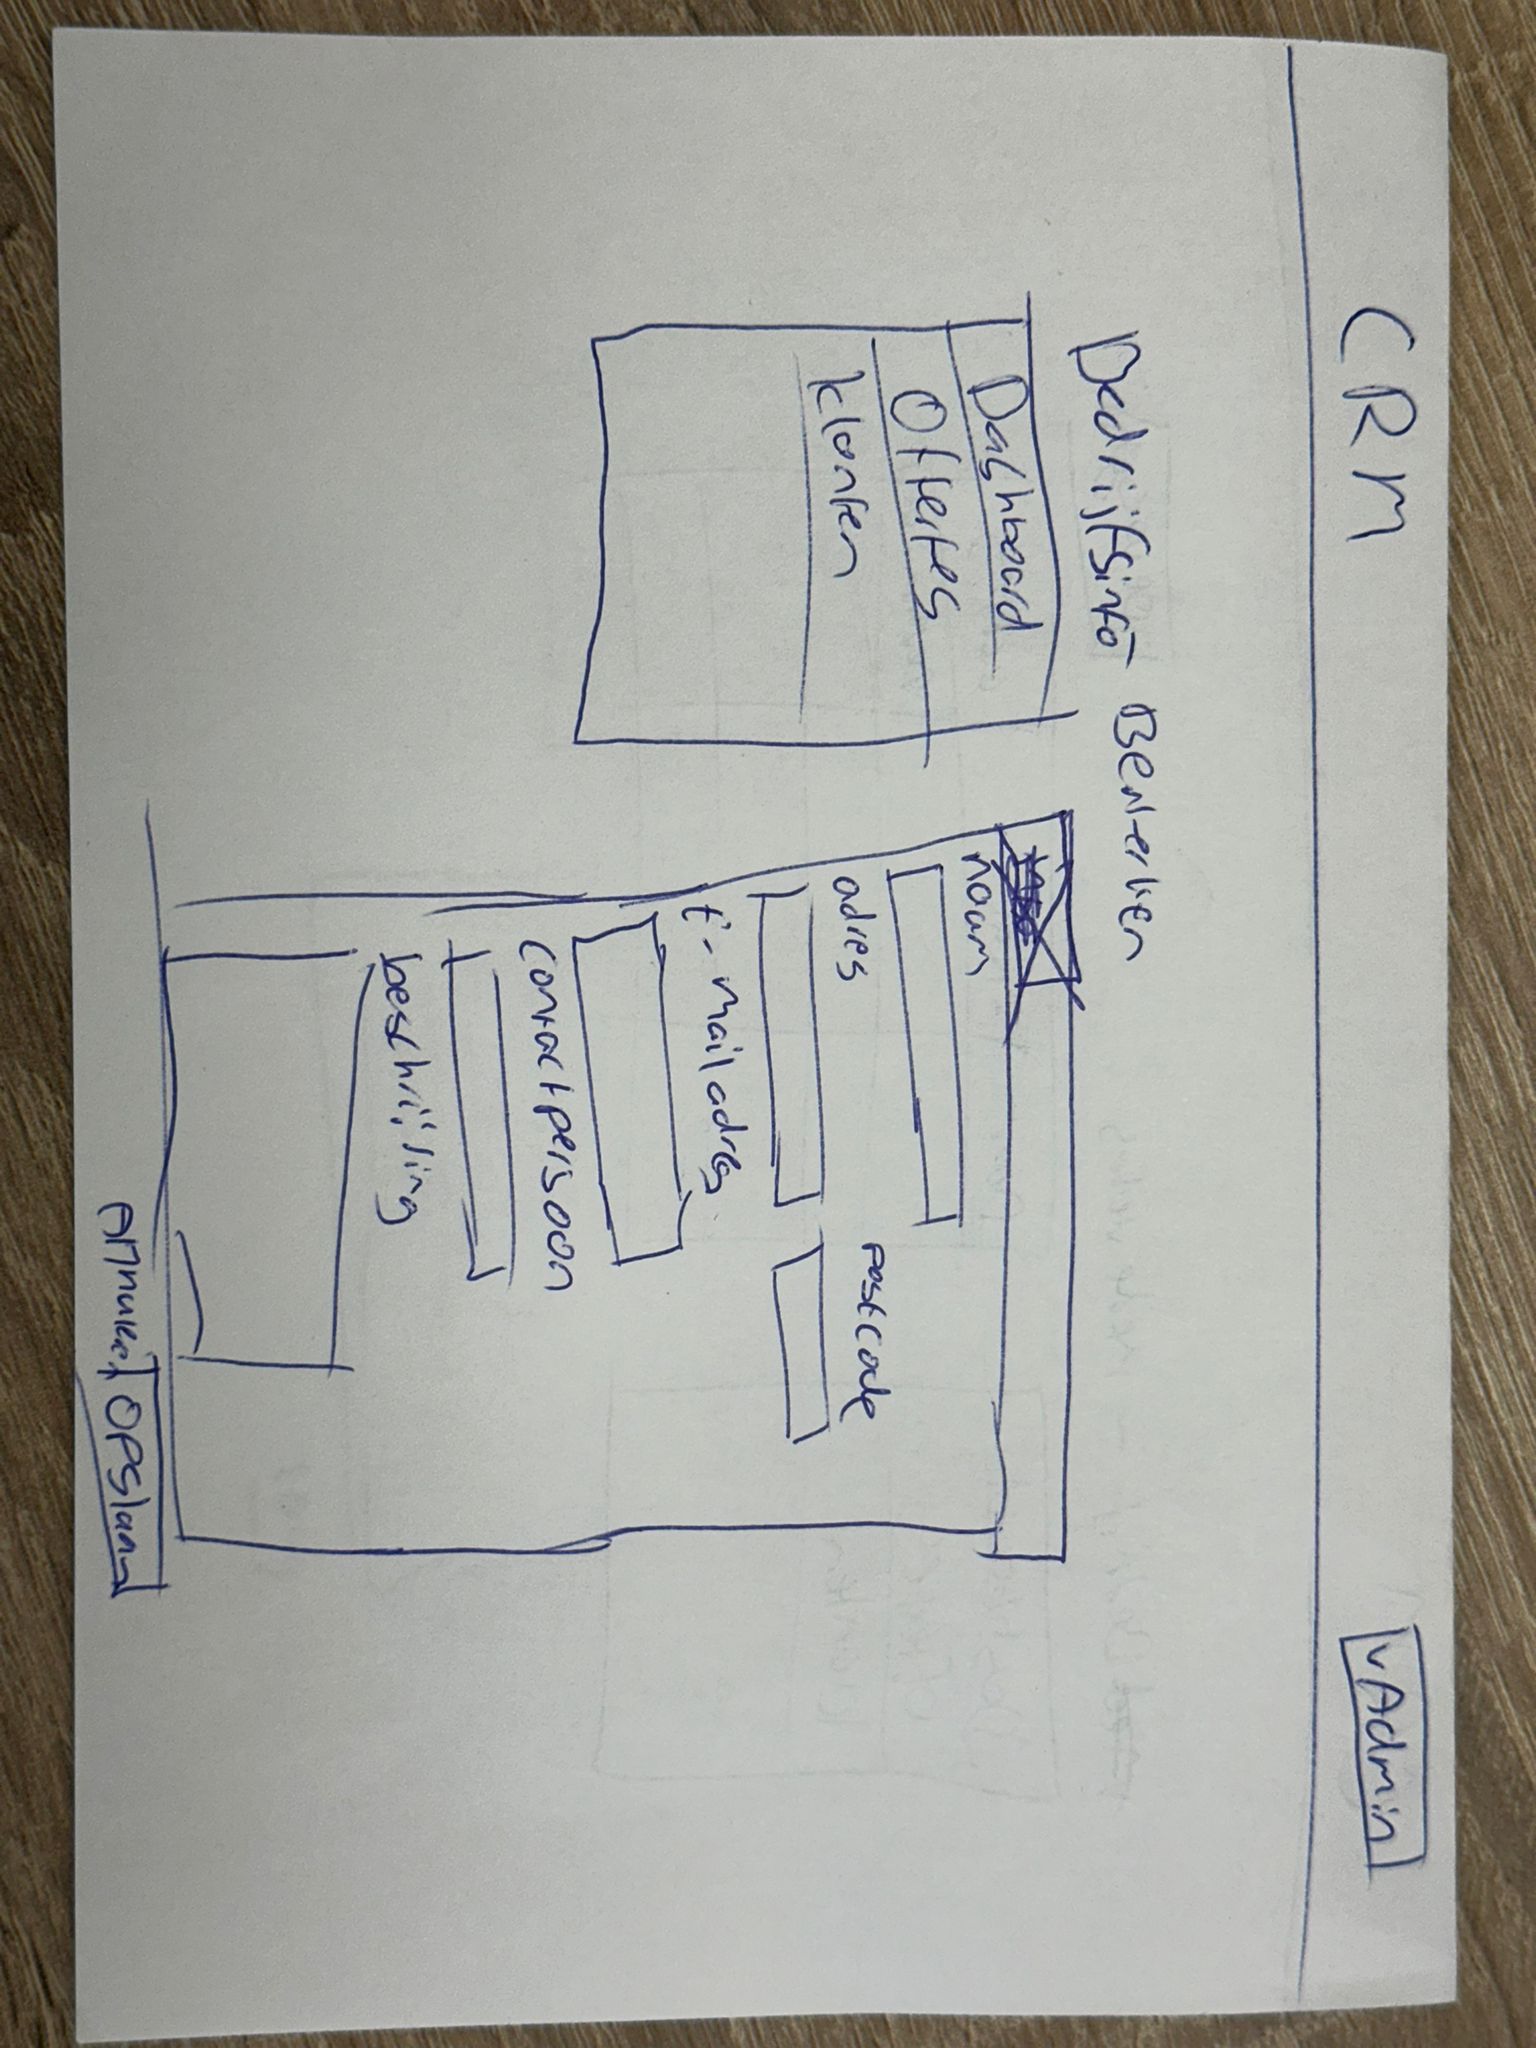 CRM
vAdmin
Bedrijfsinfo Bewerken
Dashboard
Offertes
klanten
naam
adres
postcode
E-mail adres
contactpersoon
beschrijving
Opslaan